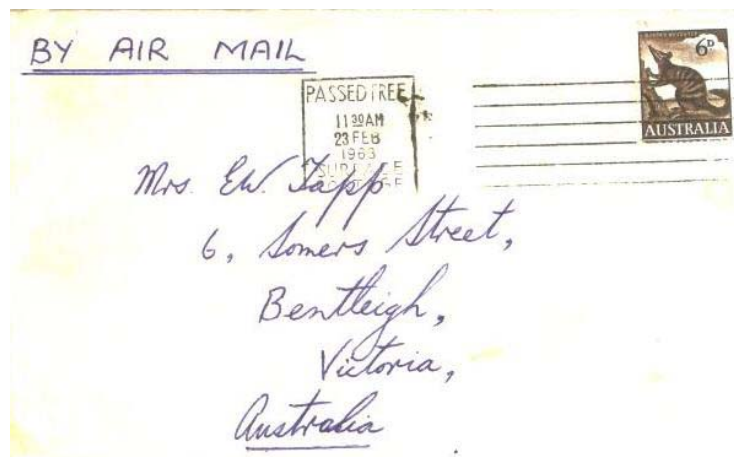 BY AIR MAIL
6D
AUSTRALIA
PASSED FREE
11 30 AM
23 FEB
1963
SURFACE
Mrs. E.W. Tapp
6, Somers Street,
Bentleigh,
Victoria,
Australia